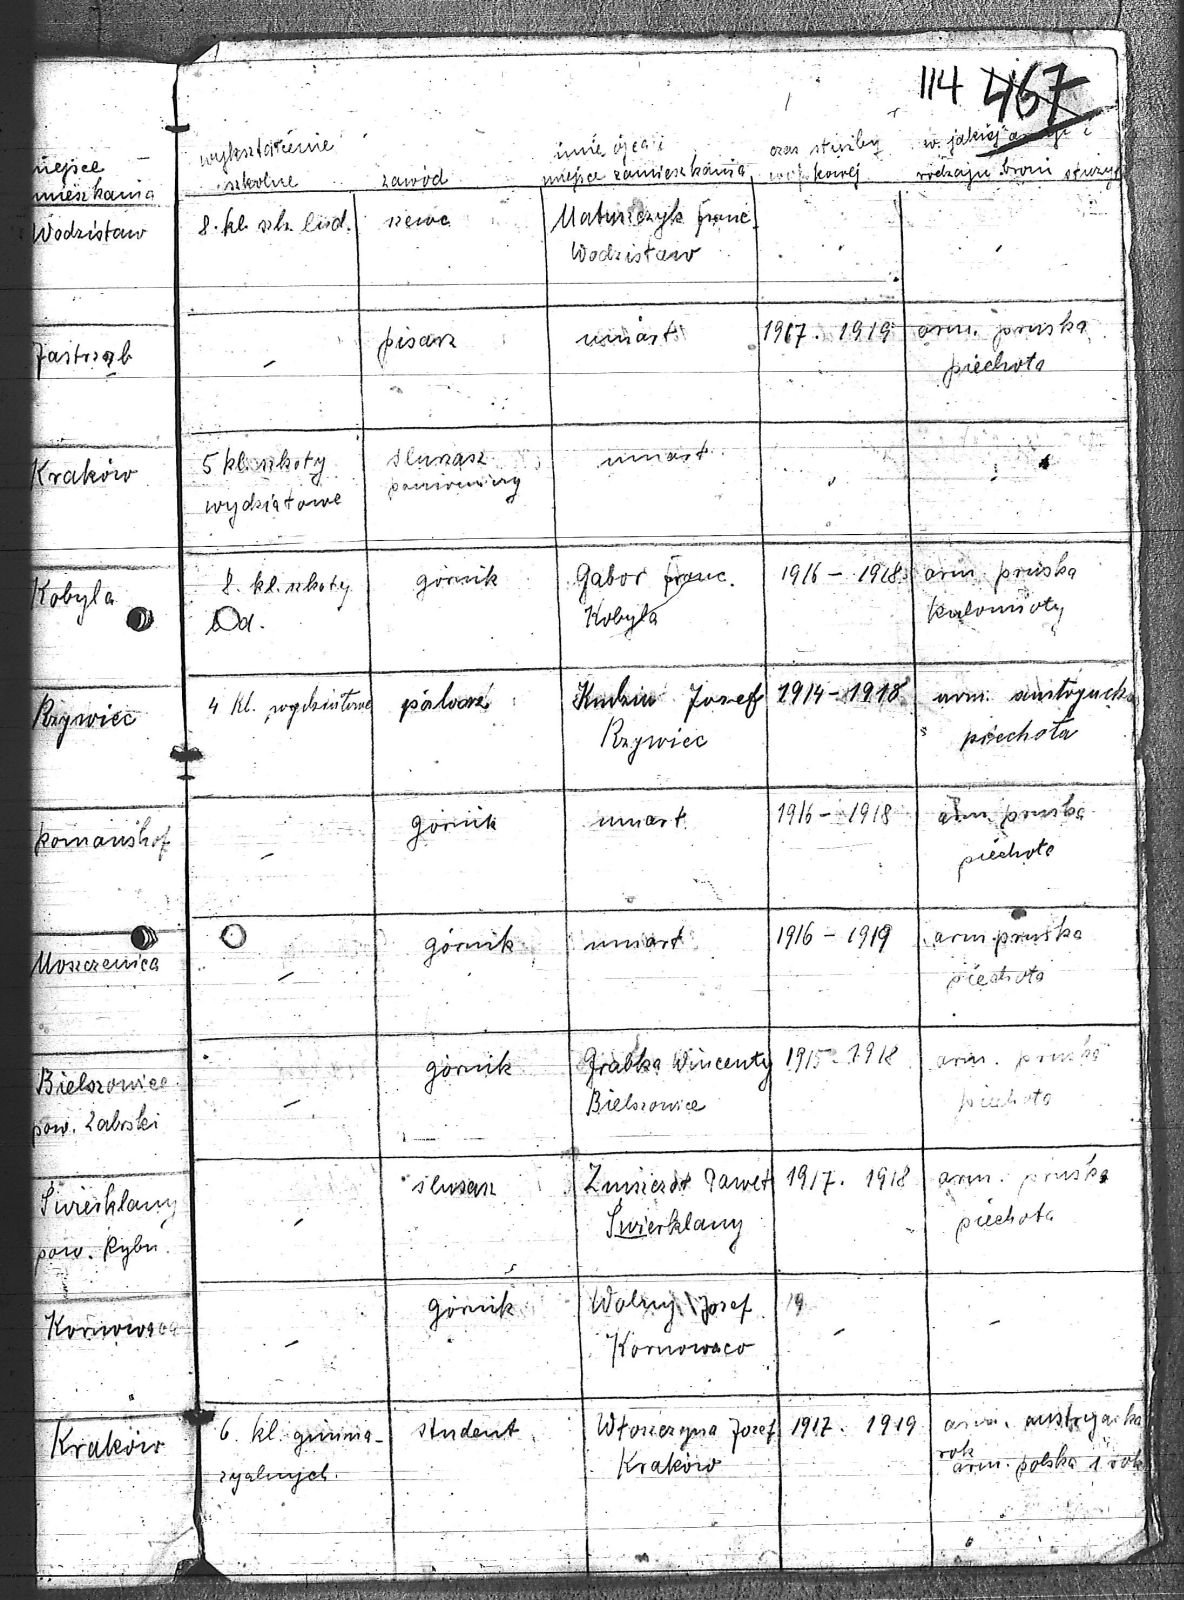 114 467
miejsce
zamieszkania
wykształcenie
szkolne
zawód
imię ojca i
miejsce zamieszkania
czas służby
wojskowej
w jakiej armji i
rodzaju broni służył
Wodzisław
8. kl. szk. lud.
szewc
Maturszczyk Franc.
Wodzisław
Jastrząb
-
pisarz
umarł
1917. 1919
arm. pruska
piechota
Kraków
5 kl. szkoły
wydziałowe
ślusarz
umarł
Kobyla
8. kl. szkoły
lud.
górnik
Gabor Franc.
Kobyla
1916 - 1918
arm. pruska
Rzywiec
4 kl. wydziałowe
Józef
Rzywiec
1914 - 1918
arm. austryacka
piechota
Romanshof
-
górnik
umarł
1916 - 1918
arm. pruska
piechota
Moszczenica
-
górnik
umarł
1916 - 1919
arm. pruska
piechota
Bielszowice
pow. Zabrski
-
górnik
Grabka Wincenty
Bielszowice
1915 - 1918
arm. pruska
piechota
Świerklany
pow. Rybn.
-
ślusarz
Paweł
Świerklany
1917. 1918
arm. pruska
piechota
Kornowaca
-
górnik
Wolny Józef
Kornowaco
19
-
-
Kraków
6. kl. gimna-
zyalnych.
student
Włoszczyna Józef
Kraków
1917. 1919
arm. austryacka
rok
arm. polska 1 rok